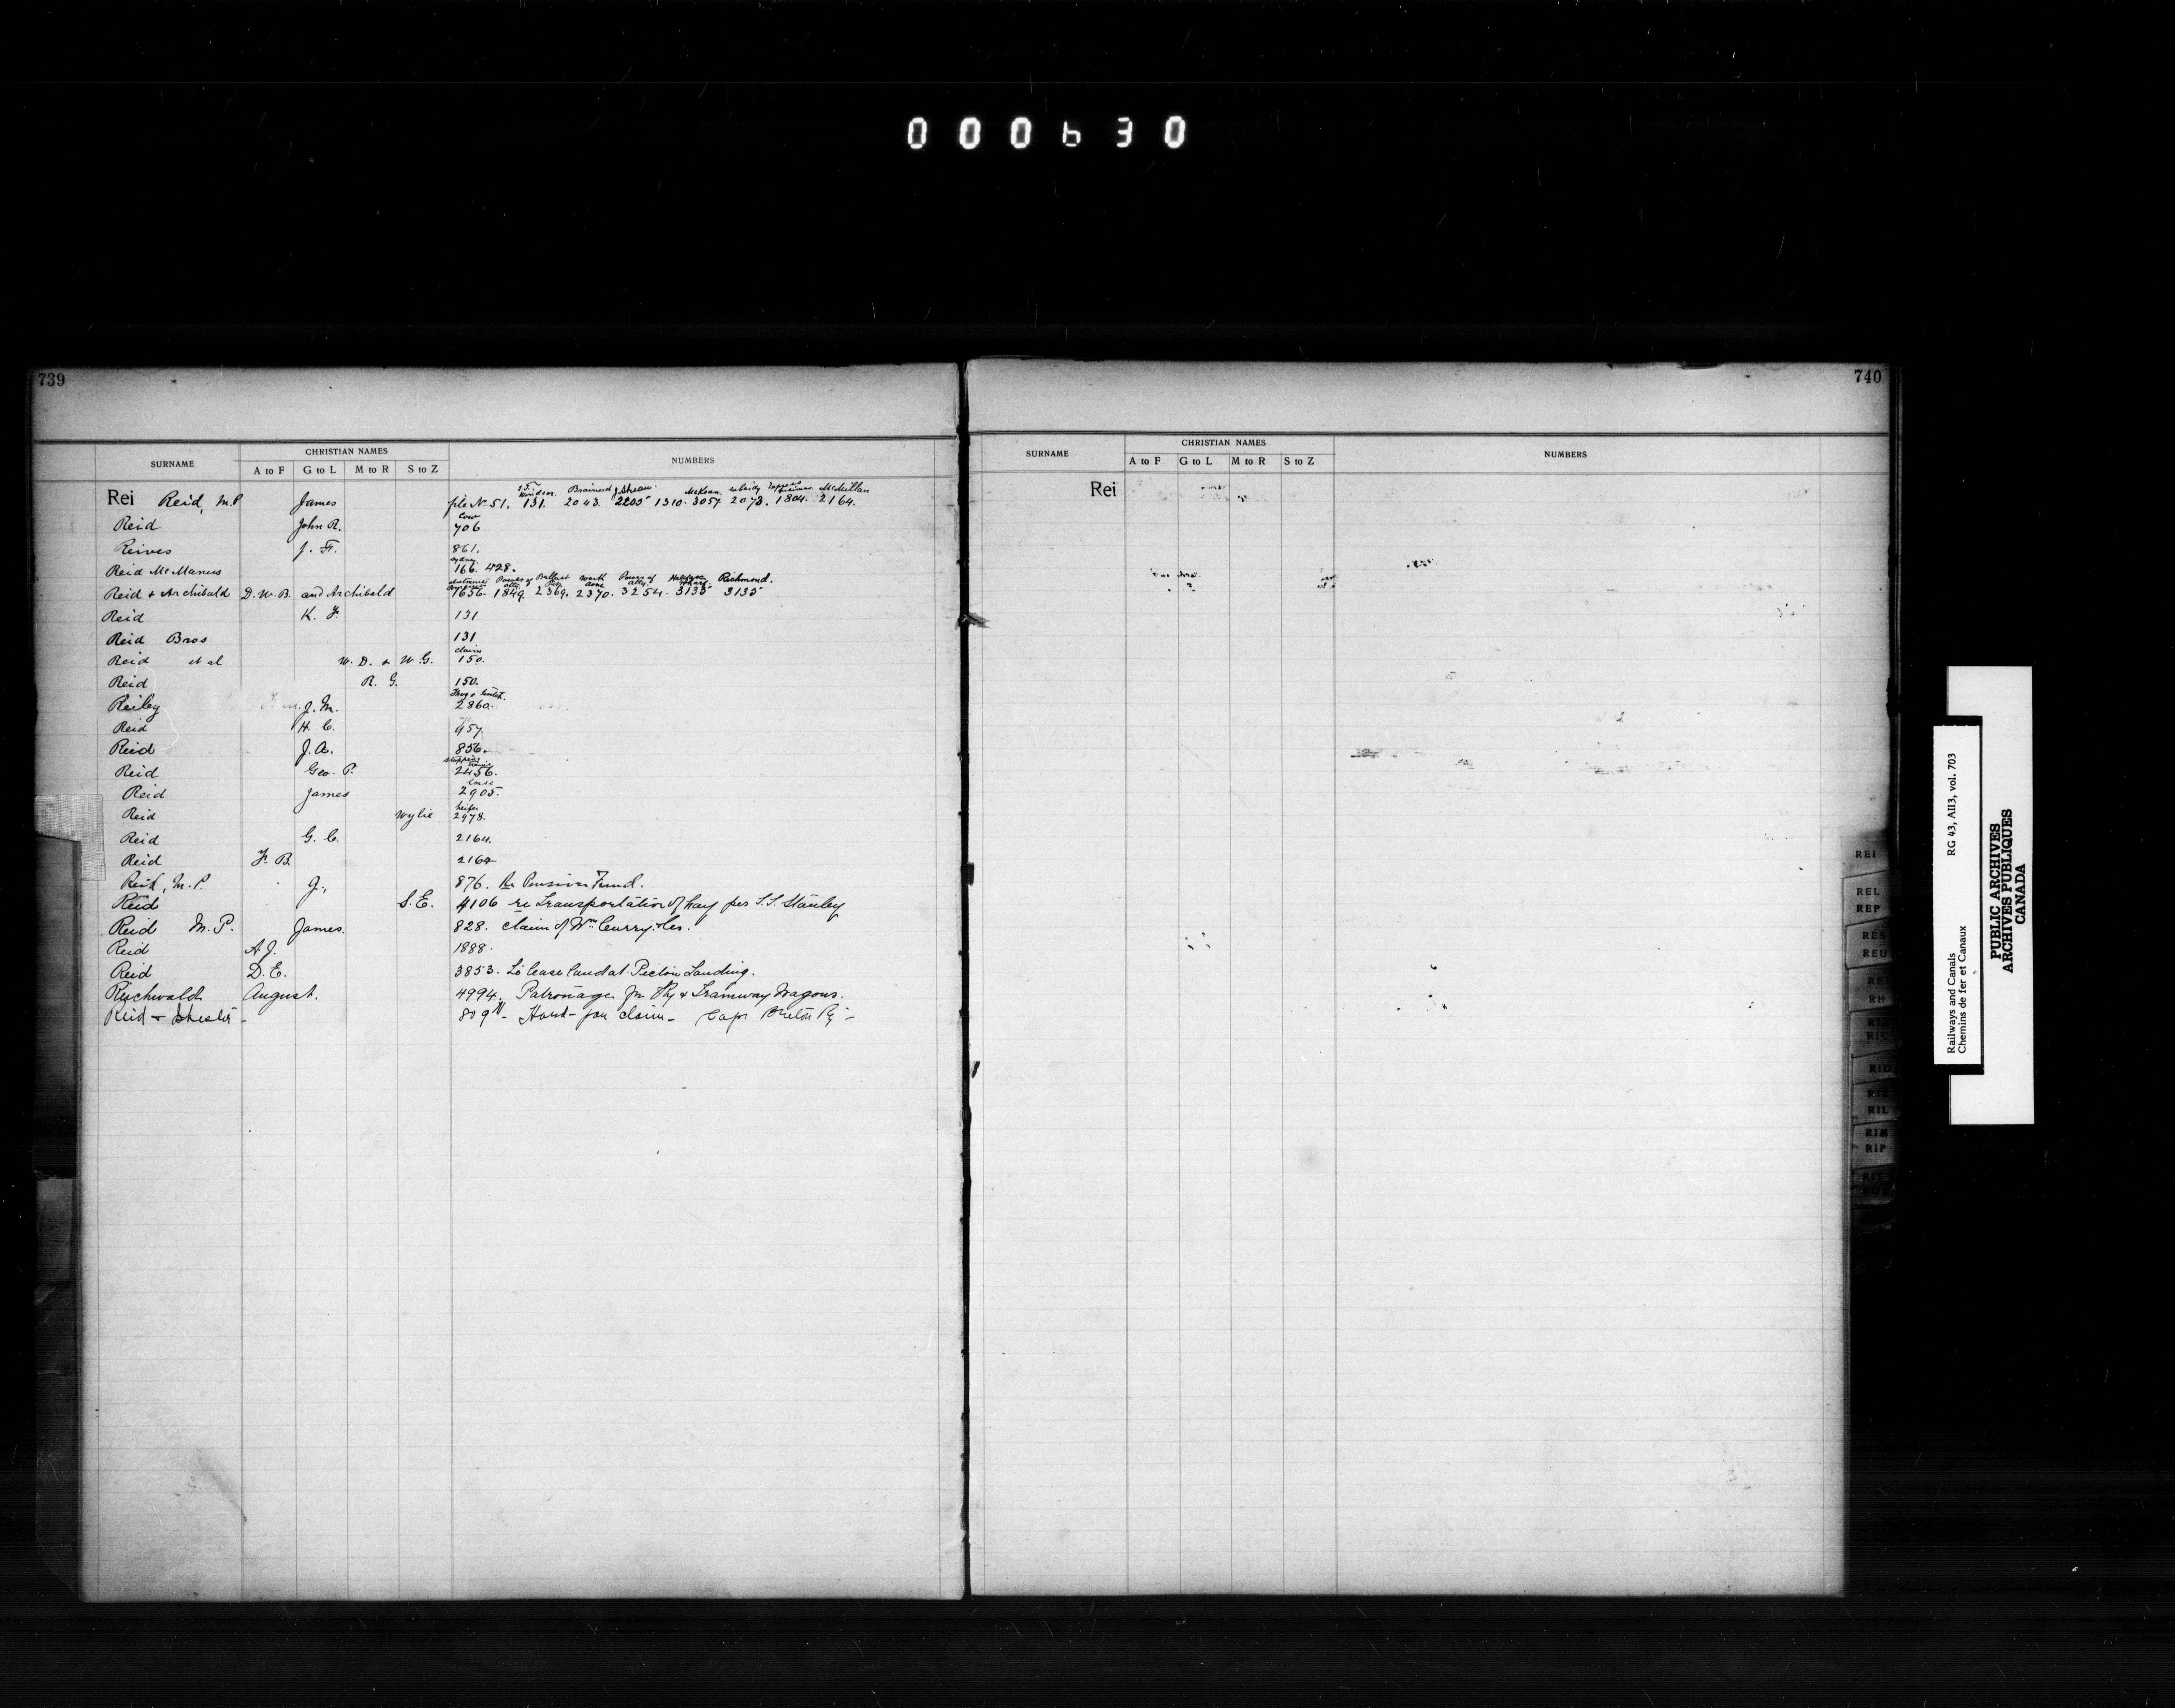 000630
739
SURNAME CHRISTIAN NAMES NUMBERS
A to F G to L M to R S to Z
Windsor. Brainerd McKean subsidy McMillan
Rei Reid, M.P. James file No 51. 131. 2043. 2205 1310. 3057. 2073. 1804. 2164.
Cow
Reid John R. 706
Reives J. F. 861.
Sydney
Reid McManus 166. 428.
Powers of atty. Ballast Pit. work done Power of atty. Halifax Wharf. Richmond.
Reid & Archibald D.W.B. and Archibald 1656. 1849. 2369. 2370. 3254. 3135 3135
Reid K. F. 131
Reid Bros 131
claim
Reid et al W. D. & W. G. 150.
Reid R. G. 150.
Reiley J. M. 2860.
Reid H. C. 957
Reid J. A. 856.
stopping trains
Reid Geo. P. 2456.
lease
Reid James 2905.
heifer
Reid Wylie 2978.
Reid G. C. 2164.
Reid F. B. 2164
Reid, M.P. J., 876. Re Pension Fund.
Reid S. E. 4106 re Transportation of hay per S.S. Stanley
Reid M. P. James. 828. Claim of Wm Curry & Co.
Reid A. J. 1888.
Reid D. E. 3853. To lease land at Pictou Landing.
Reichwald August. 4994. Patronage for Ry & Tramway Wagons.
Reid 809 claim - Cape Breton Ry -
740
SURNAME CHRISTIAN NAMES NUMBERS
A to F G to L M to R S to Z
Rei
REI
REL
REP
RES
REU
REV
RH
RIA
RIC
RID
RIL
RIM
RIP
RIT
Railways and Canals RG 43, AII3, vol. 703
Chemins de fer et Canaux
PUBLIC ARCHIVES
ARCHIVES PUBLIQUES
CANADA